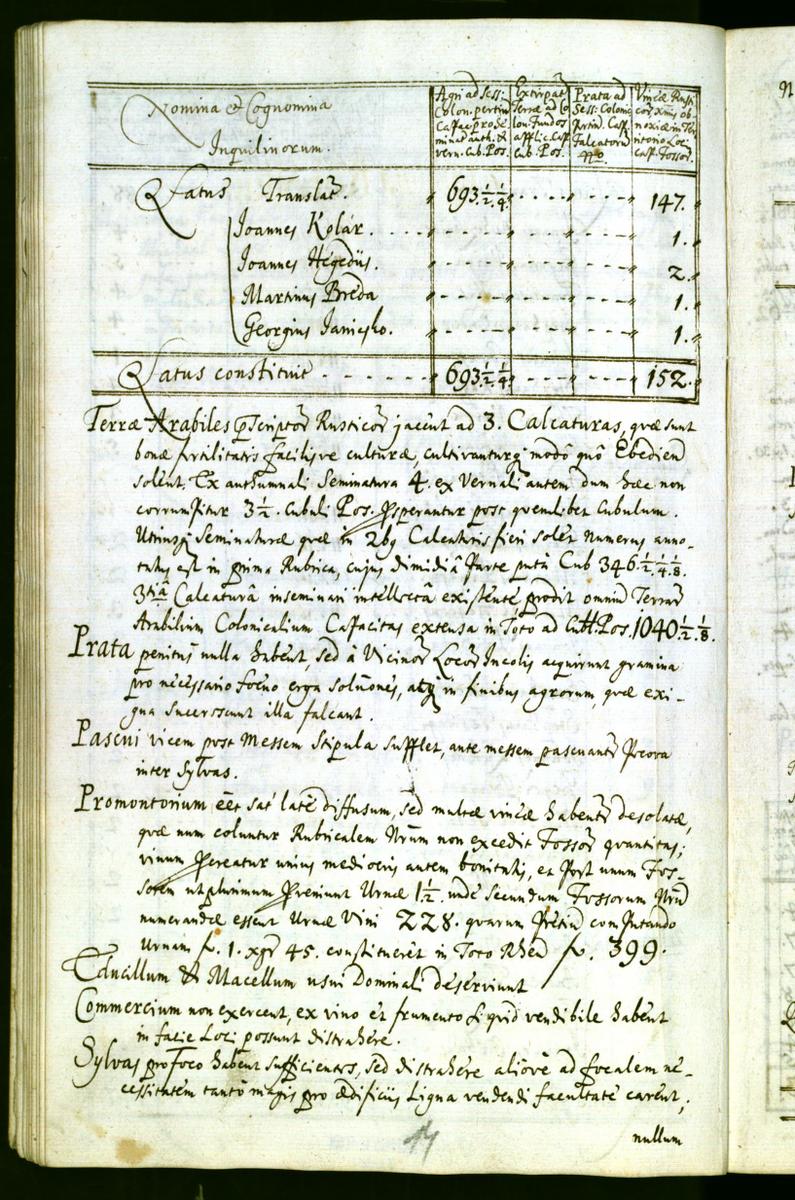 Nomina & Cognomina
Inquilinorum.
Agri ad Sess:
Colon. pertin
Capac. pro Se
minat. auth. &
vern. Cub. Pos.
Extirpat
Terræ ad Co
lon. Fundos
applic. Cap.
Cub. Pos.
Prata ad
Sess: Colonic
Pertin. Cap.
Falcatorū
Nro
Vineæ Rusti
ob
noxiæ in Ter
ritorio Loci
Cap. Fossor.
Latus Translat. 693 1/2 1/4 147.
Joannes Kolár. 1.
Joannes Hegedüs. 2.
Martinus Breda 1.
Georgius Janicsko. 1.
Latus constituit 693 1/2 1/4 152.
Terræ Arabiles pscriptor Rusticor jacent ad 3. Calcaturas, quæ sunt
bonæ fertilitatis facilisve culturæ, cultivanturq modô quô Ebedien
solent. Ex authumnali Seminatura 4. ex Vernali autem dum hæc non
corrumpitur 3 1/2. Cubuli Pos. Psperantur post quemlibet Cubulum.
Utriusq Seminaturæ quæ in 2bg Calcaturis fieri solet numerus anno-
tatus est in prima Rubrica, cujus dimidiâ Parte putà Cub 346 1/2 1/4 1/8.
3tiâ Calcaturâ inseminari intellectâ existente prodit omniū Terrar
Arabilium Colonicalium Capacitas extensa in Toto ad Cub. Pos. 1040 1/2 1/8.
Prata penitus nulla habent, sed à Vicinor Locor Incolis acquirunt gramina
pro necessario foeno erga soluōnes, atq in finibus agrorum, quæ exi-
gua succrescunt illa falcant.
Pascui vicem post Messem Stipula supplet, ante messem pascuantr Pecora
inter Sylvas.
Promontorium eēt sat latè diffusum, sed multæ vineæ habentr desolatæ,
quæ num coluntur Rubricalem Nrūm non excedit Fossor quantitas;
vinum Pcreatur unius mediocris autem bonitatis, et Post unum Fos-
sorem ut plurimum Pveniunt Urnæ 1 1/2. unde secundum Fossorum Nrū
numerandæ essent Urnæ Vini 228. quarum Pretiū computando
Urnam fl. 1. xgr 45. constitueret in Toto Rhen fl. 399.
Educillum & Macellum usui Dominali deserviunt
Commercium non exercent, ex vino et frumento si quid vendibile habent
in facie Loci possunt distrahere.
Sylvas pro Foco habent sufficientes, sed distrahere aliove ad focalem ne-
cessitatem tantô magis pro ædificiis Ligna vendendi facultate carent;
nullum